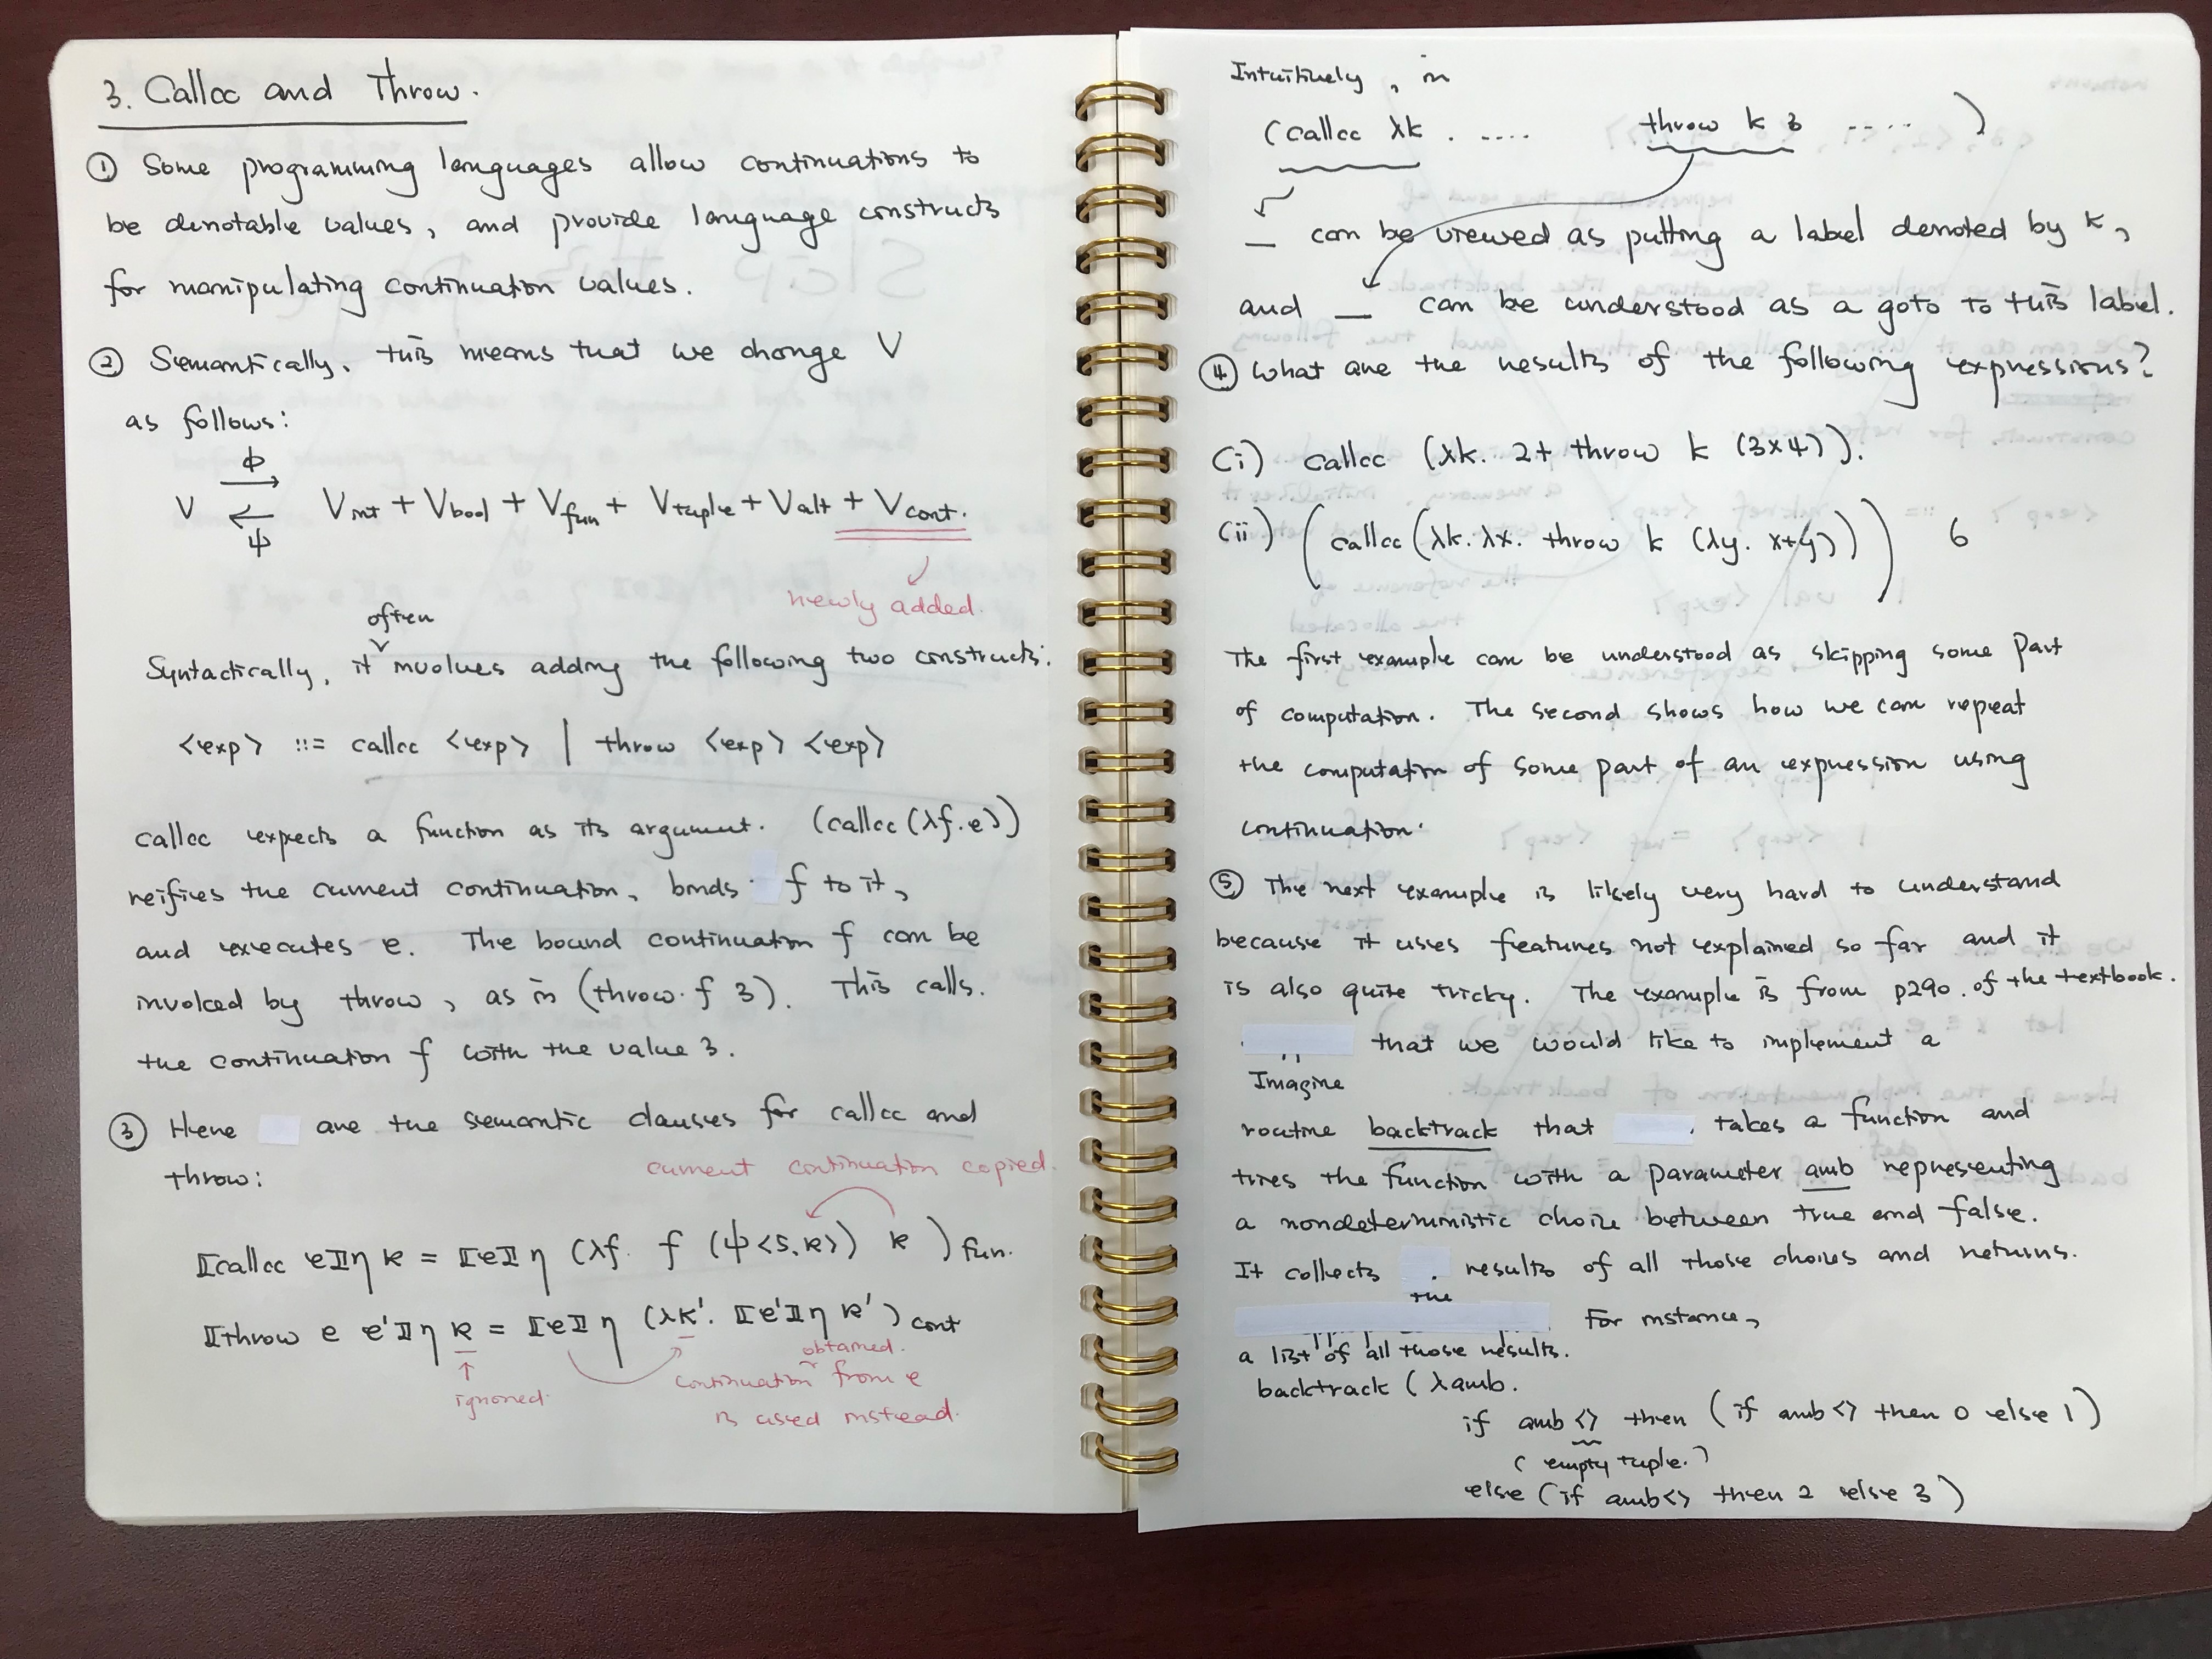 3. Callcc and Throw.
① Some programming languages allow continuations to
be denotable values, and provide language constructs
for manipulating continuation values.
② Semantically, this means that we change V
as follows:
ϕ
V ⇄ V_int + V_bool + V_fun + V_tuple + V_alt + V_cont.
ψ
newly added.
often
Syntactically, it involves adding the following two constructs:
<exp> ::= callcc <exp> | throw <exp> <exp>
callcc expects a function as its argument. (callcc (λf.e))
reifies the current continuation, binds f to it,
and executes e. The bound continuation f can be
invoked by throw, as in (throw f 3). This calls
the continuation f with the value 3.
③ Here are the semantic clauses for callcc and
throw:
current continuation copied.
⟦callcc e⟧η κ = ⟦e⟧η (λf. f (ψ<5,κ>) κ)fun.
⟦throw e e'⟧η κ = ⟦e⟧η (λκ'. ⟦e'⟧η κ')cont
ignored.
obtained.
continuation from e
is used instead.
Intuitively, in
(callcc λk. .... throw k 3 .... )
_ can be viewed as putting a label denoted by k,
and _ can be understood as a goto to this label.
④ What are the results of the following expressions?
(i) callcc (λk. 2+ throw k (3×4)).
(ii) (callcc (λk. λx. throw k (λy. x+y))) 6
The first example can be understood as skipping some part
of computation. The second shows how we can repeat
the computation of some part of an expression using
continuation.
⑤ The next example is likely very hard to understand
because it uses features not explained so far and it
is also quite tricky. The example is from p290. of the textbook.
that we would like to implement a
Imagine
routine backtrack that takes a function and
tries the function with a parameter amb representing
a nondeterministic choice between true and false.
It collects results of all those choices and returns.
the
For instance,
a list of all those results.
backtrack (λamb.
if amb <> then (if amb <> then 0 else 1)
(empty tuple.)
else (if amb <> then 2 else 3)